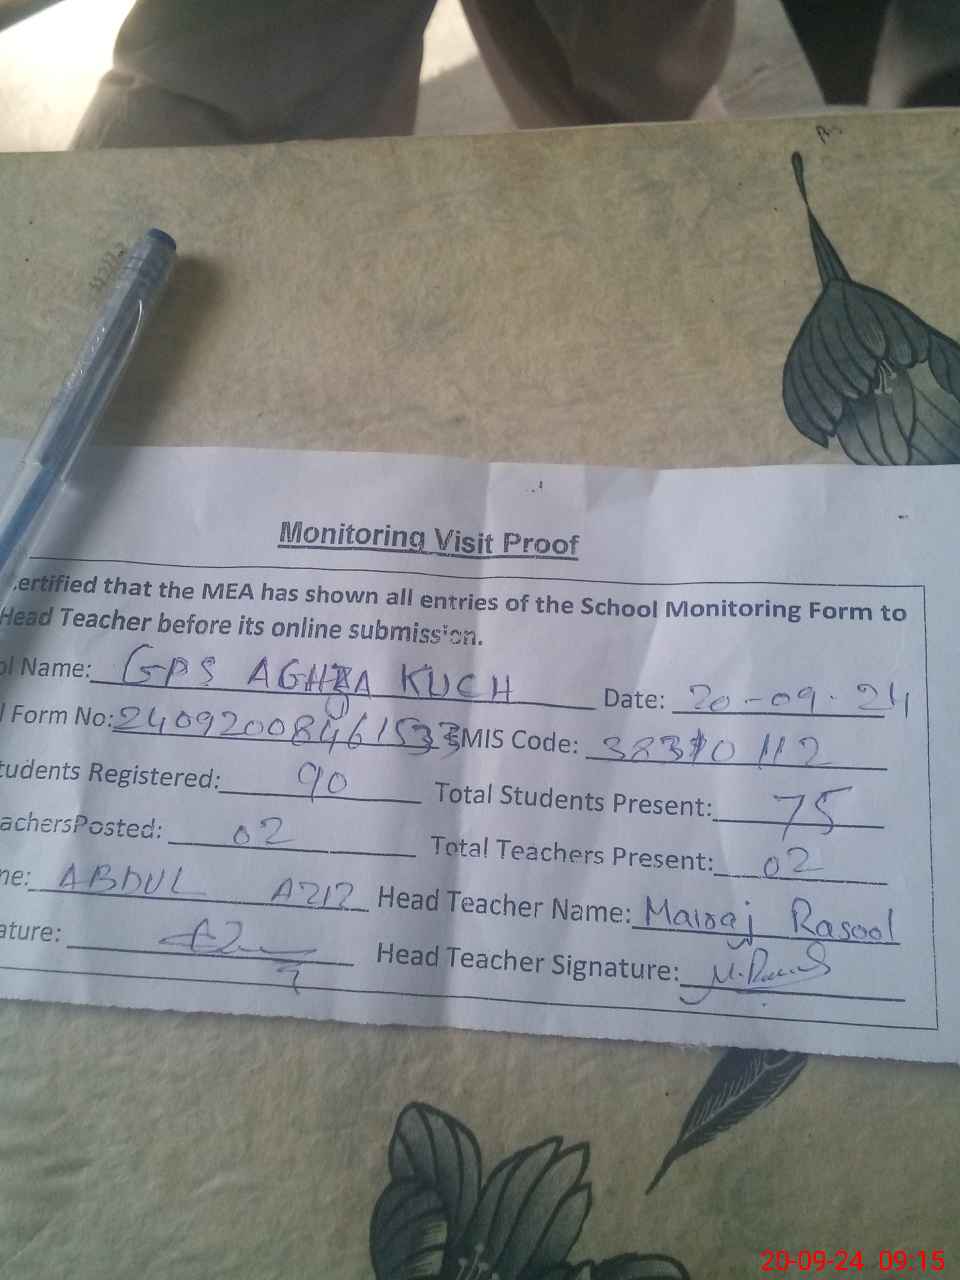 Monitoring Visit Proof
ertified that the MEA has shown all entries of the School Monitoring Form to
Head Teacher before its online submission.
ol Name: GPS AGHZA KUCH Date: 20-09-24
l Form No: 24092008461533 EMIS Code: 38310112
tudents Registered: 90 Total Students Present: 75
achersPosted: 02 Total Teachers Present: 02
me: ABDUL AZIZ Head Teacher Name: Mairaj Rasool
ature: Head Teacher Signature:
20-09-24 09:15